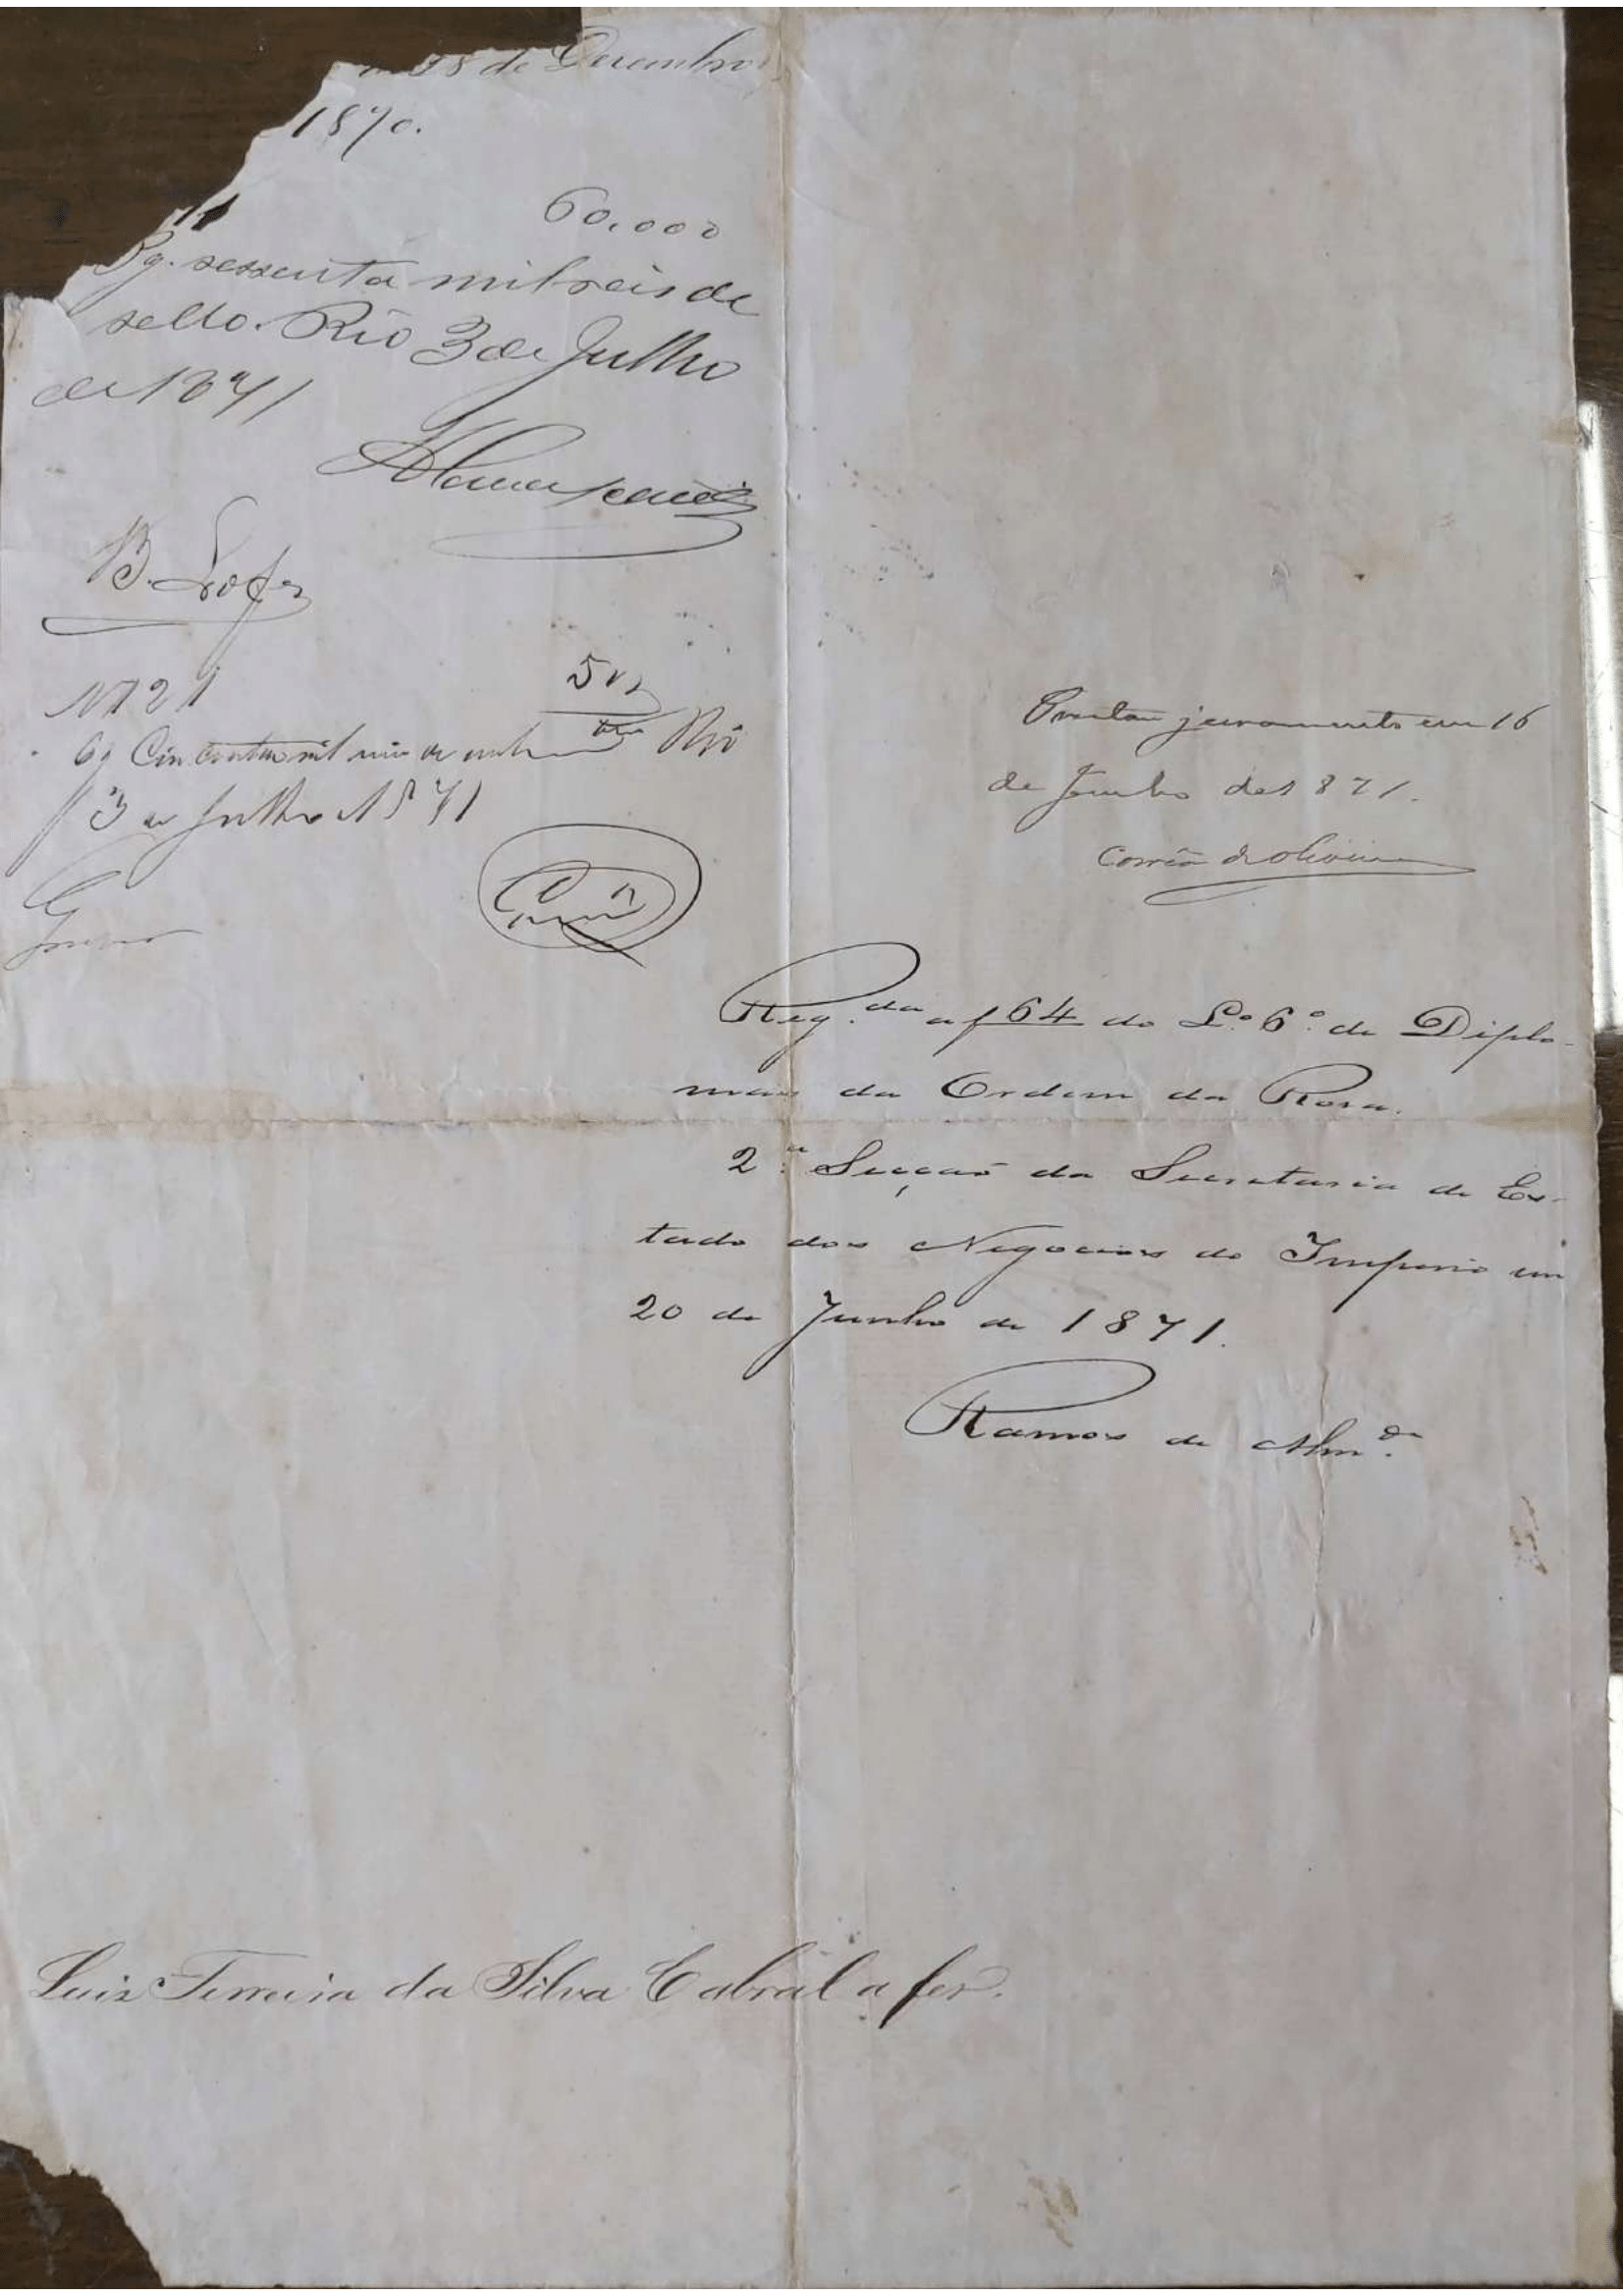 28 de Dezembro
1870.
60.000
Pg. sessenta mil reis de
sello. Rio 3 de Julho
de 1871
B. Lopes
N 121
Pg Cincoenta mil reis de Rio
3 de Julho 1871
Prestou juramento em 16
de Junho de 1871.
Corrêa de Oliveira
Reg.da a f 64 do L.o 6.o de Diplo-
mas da Ordem da Rosa.
2.a Secção da Secretaria de Es-
tado dos Negocios do Imperio em
20 de Junho de 1871.
Ramos de Alm.da
Luiz Ferreira da Silva Cabral a fez.